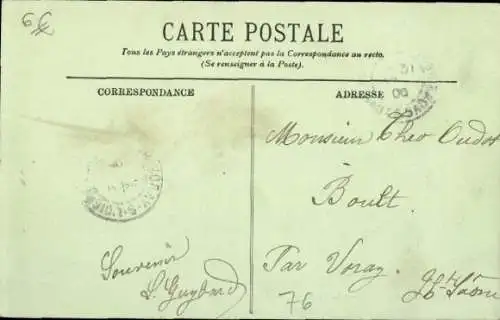 6€
CARTE POSTALE
Tous les Pays étrangers n'acceptent pas la Correspondance au recto.
(Se renseigner à la Poste).
CORRESPONDANCE
ADRESSE
Monsieur Theo Oudot
Boult
Par Voray
Hte Saône
Souvenir
L. Guybard
76